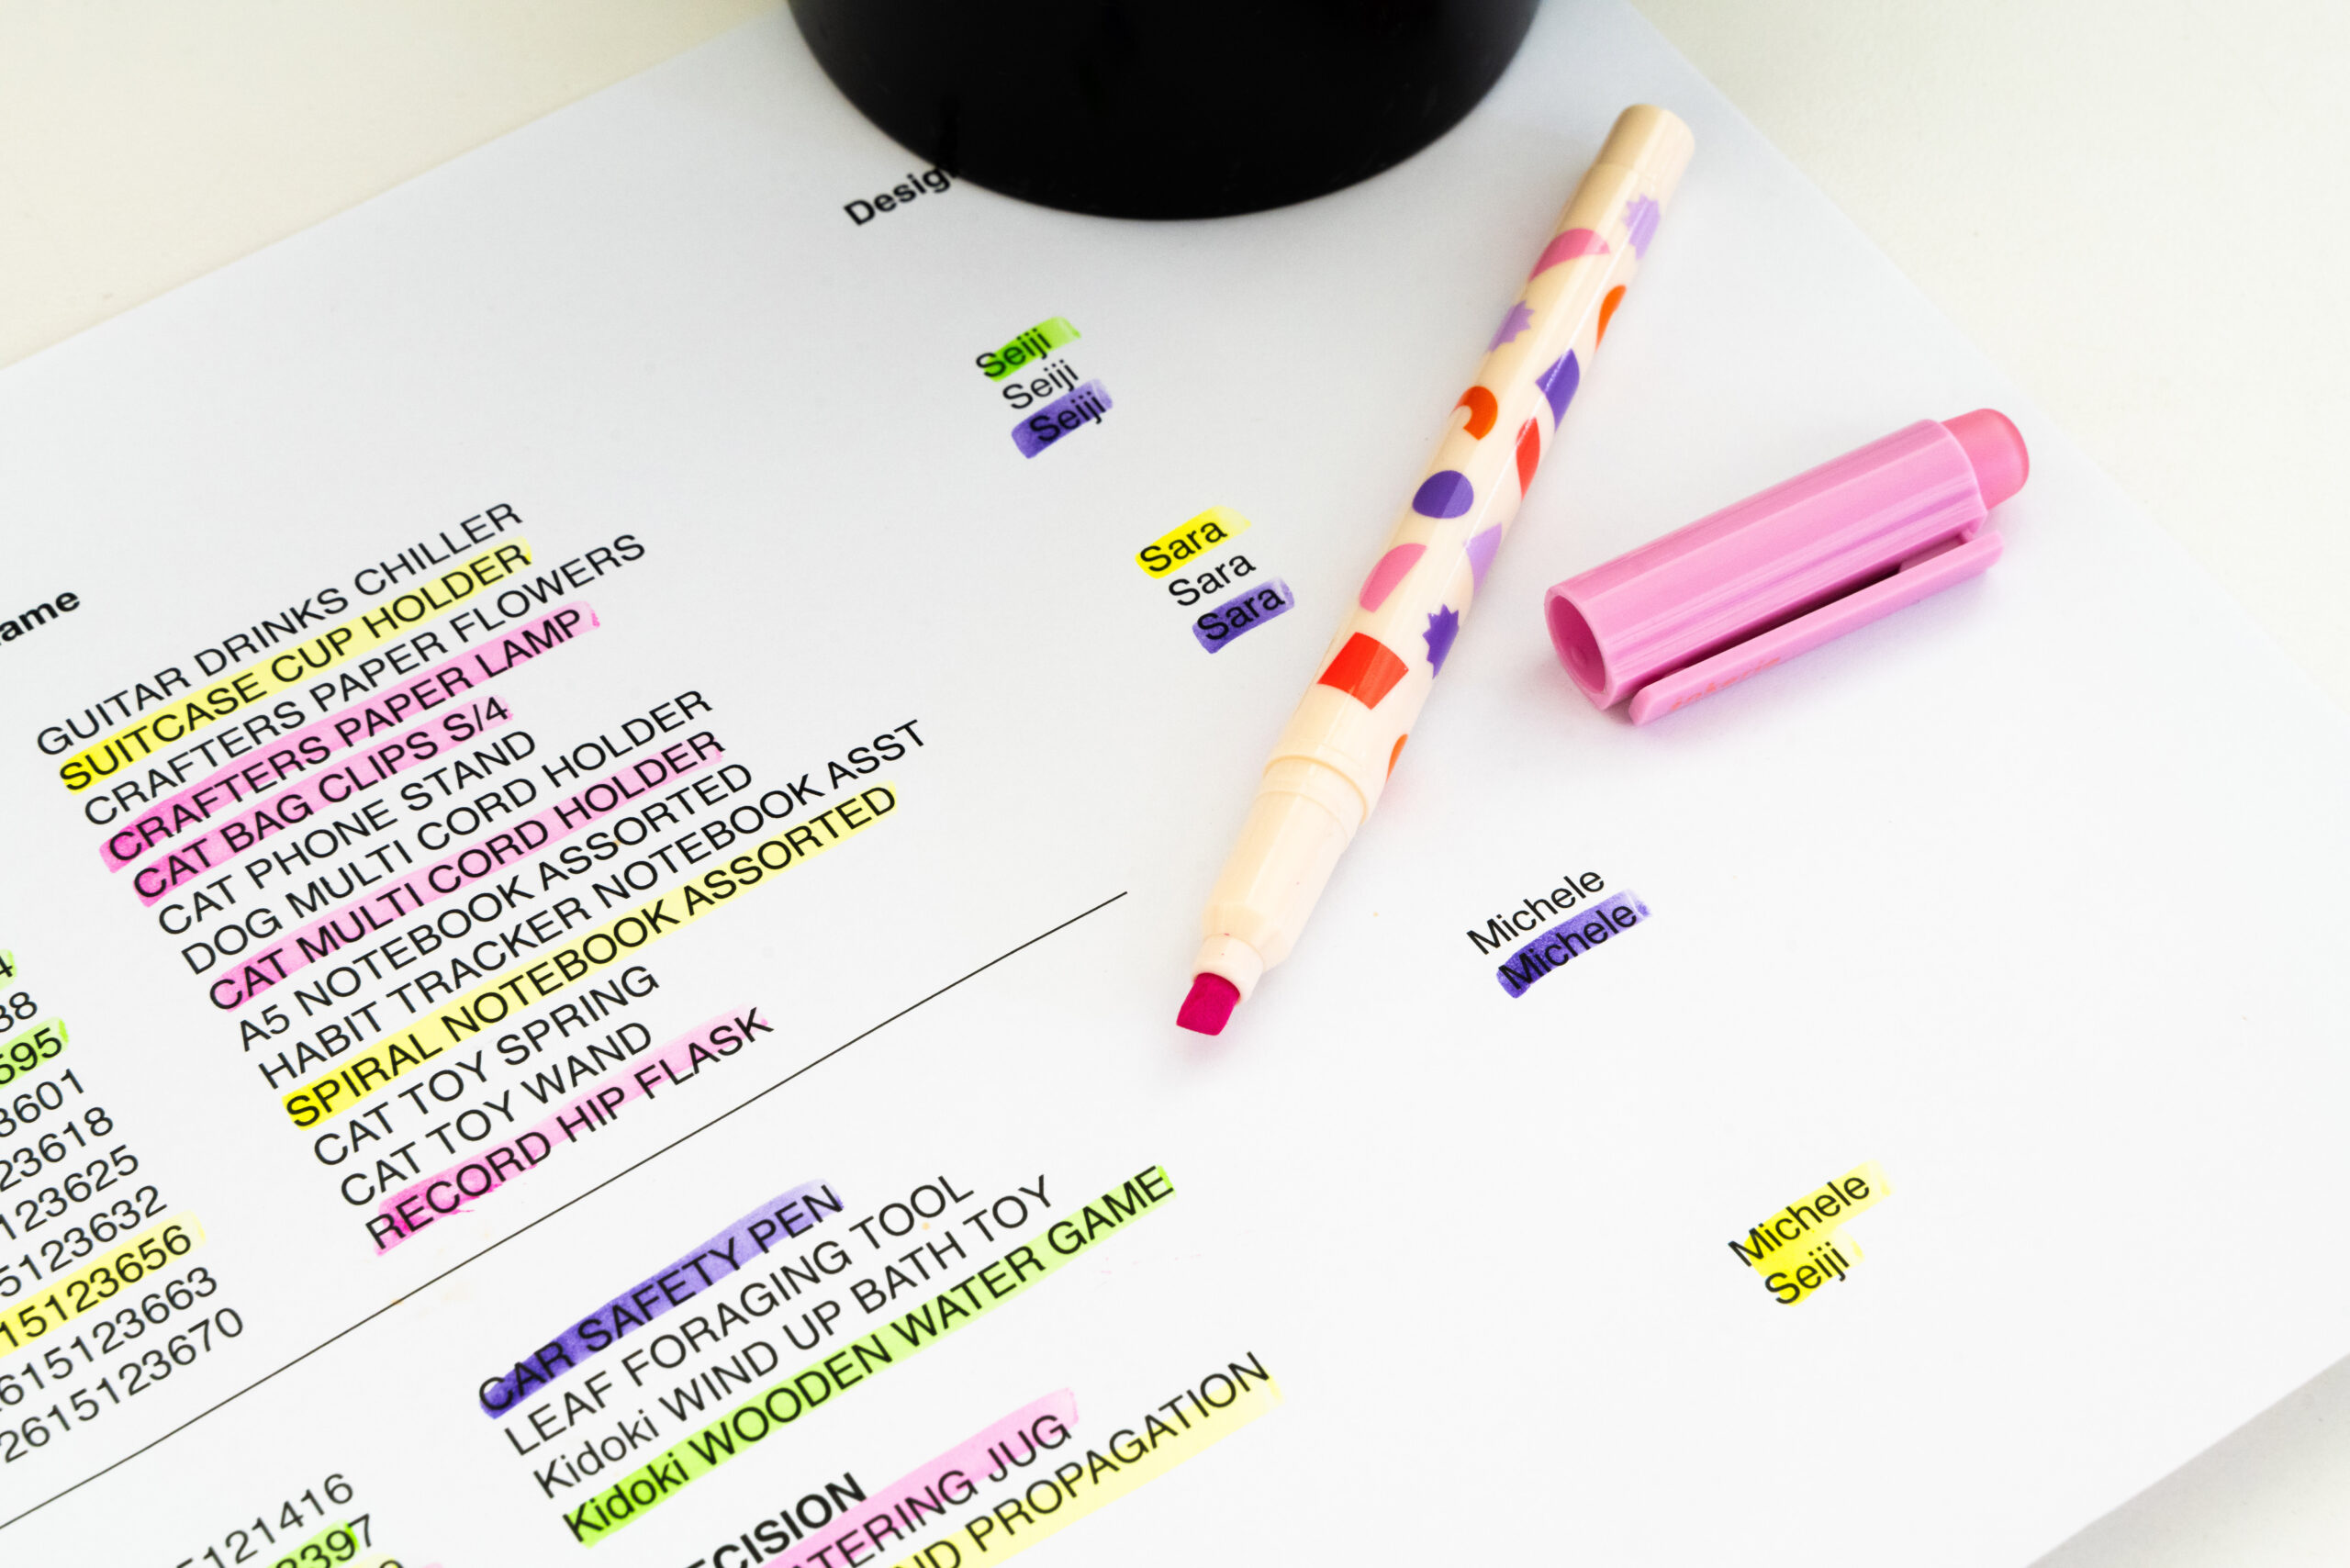 Desig
Seiji
Seiji
Seiji
Sara
Sara
Sara
Michele
Michele
Michele
Seiji
ame
GUITAR DRINKS CHILLER
SUITCASE CUP HOLDER
CRAFTERS PAPER FLOWERS
CRAFTERS PAPER LAMP
CAT BAG CLIPS S/4
CAT PHONE STAND
DOG MULTI CORD HOLDER
CAT MULTI CORD HOLDER
A5 NOTEBOOK ASSORTED
HABIT TRACKER NOTEBOOK ASST
SPIRAL NOTEBOOK ASSORTED
CAT TOY SPRING
CAT TOY WAND
RECORD HIP FLASK
4
38
595
3601
23618
123625
5123632
15123656
615123663
2615123670
CAR SAFETY PEN
LEAF FORAGING TOOL
Kidoki WIND UP BATH TOY
Kidoki WOODEN WATER GAME
5121416
3397
ECISION
ATERING JUG
ND PROPAGATION